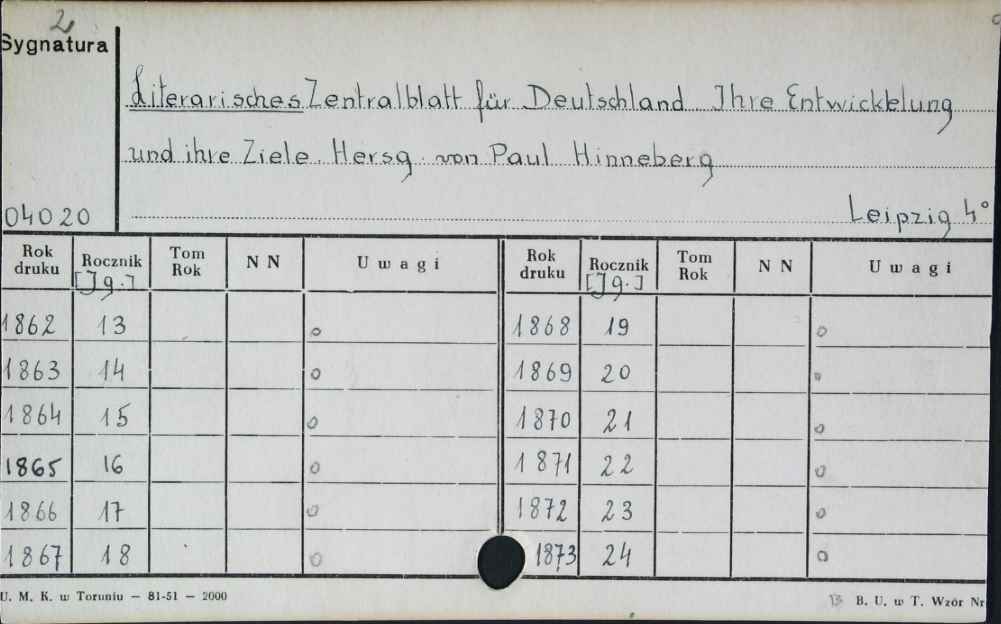 2
Sygnatura
Literarisches Zentralblatt für Deutschland. Ihre Entwicklung
und ihre Ziele. Hersg. von Paul Hinneberg
04020
Leipzig 4°
Rok druku Rocznik [Jg.] Tom Rok N N Uwagi Rok druku Rocznik [Jg.] Tom Rok N N Uwagi
1862 13 o 1868 19 o
1863 14 o 1869 20 o
1864 15 o 1870 21 o
1865 16 o 1871 22 o
1866 17 o 1872 23 o
1867 18 o 1873 24 o
U. M. K. w Toruniu — 81-51 — 2000
B. U. w T. Wzór Nr